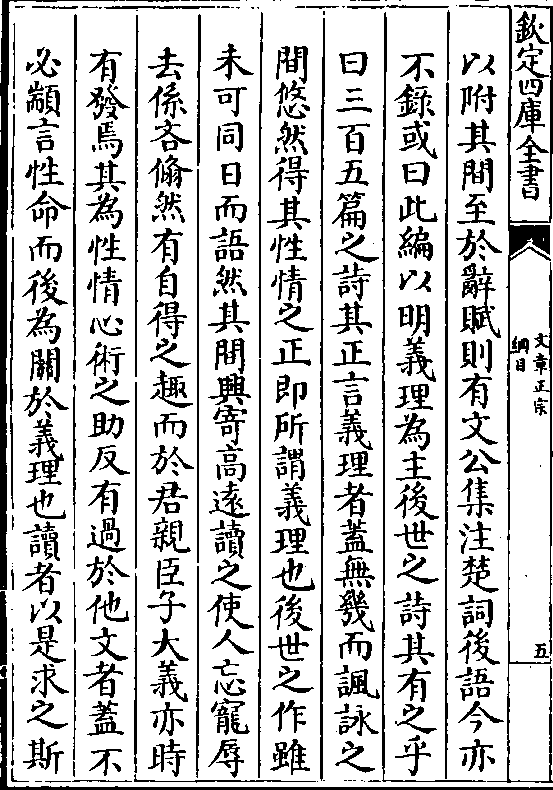 欽定四庫全書
文章正宗
綱目
五
以附其間至於辭賦則有文公集注楚詞後語今亦
不錄或曰此編以明義理為主後世之詩其有之乎
曰三百五篇之詩其正言義理者蓋無幾而諷詠之
間悠然得其性情之正即所謂義理也後世之作雖
未可同日而語然其間興寄高遠讀之使人忘寵辱
去係吝翛然有自得之趣而於君親臣子大義亦時
有發焉其為性情心術之助反有過於他文者蓋不
必顓言性命而後為關於義理也讀者以是求之斯